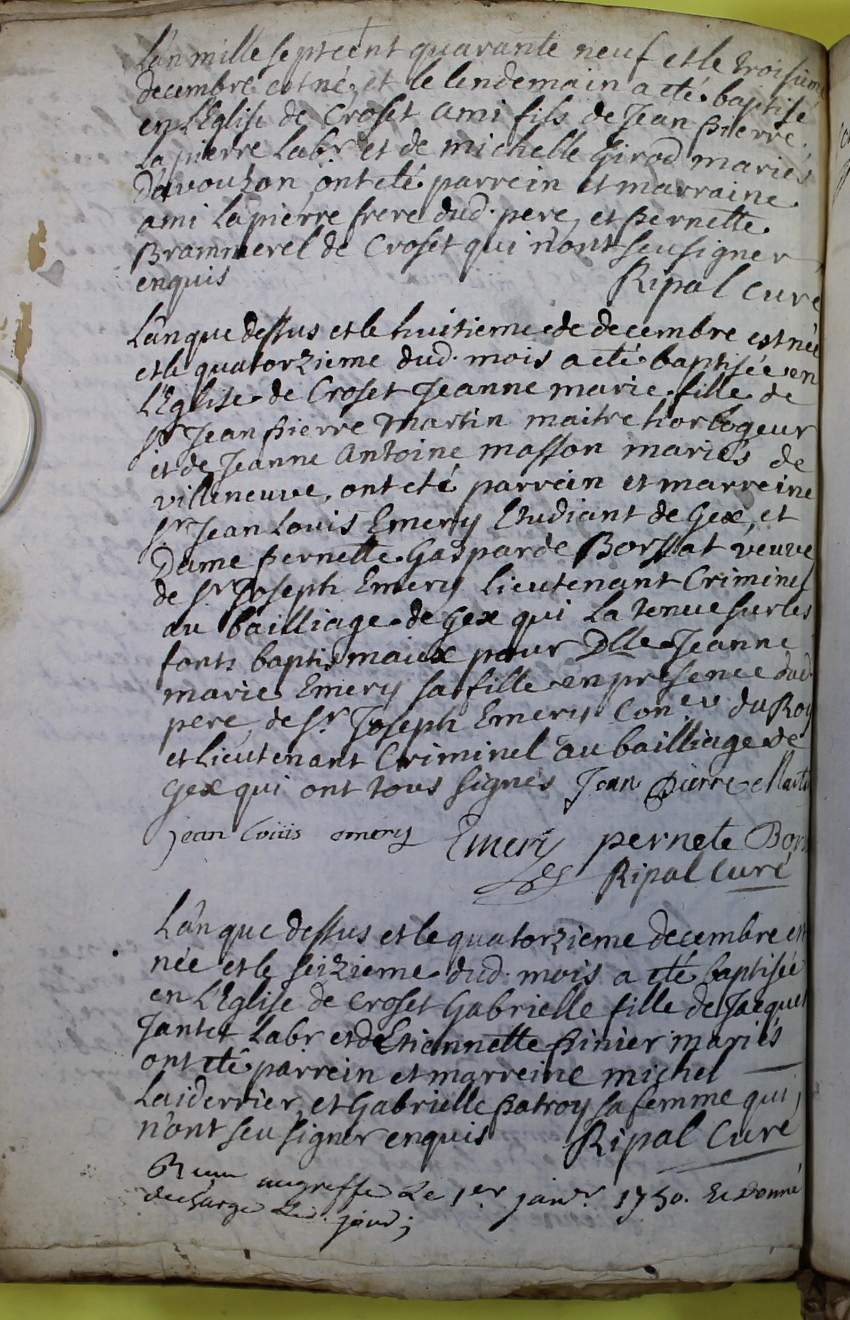 L'an mille sept cent quarante neuf et le troisieme
decembre est né, et le lendemain a eté baptisé
en L'Eglise de Croset Ami fils de Jean pierre
Lapierre Labr. et de michelle Girod mariés
D'avouzon ont eté parrein et marraine
ami Lapierre frere dud. pere, et pernette
Brammerel de Croset qui n'ont seu signer
enquis Ripal Curé
L'an que dessus et le huitieme de decembre est née
et le quatorzieme dud. mois a eté baptisée en
L'Eglise de Croset Jeanne marie fille de
Sr. Jean pierre Martin maitre horlogeur
et de Jeanne Antoine masson mariés de
villeneuve, ont eté parrein et marreine
Sr. Jean Louis Emery Etudiant de Gex, et
Dame pernette Gasparde Borssat veuve
de Sr. Joseph Emery Lieutenant Criminel
au bailliage de Gex qui La tenue sur les
fonts baptismaux pour Dlle Jeanne
marie Emery sa fille en presence dud.
pere, de Sr. Joseph Emery Coner. du Roy
et Lieutenant Criminel au bailliage de
Gex qui ont tous signés Jean Pierre Martin
jean louis emery Emery pernete Bors
Ripal Curé
L'an que dessus et le quatorzieme decembre est
née et le seizieme dud. mois a eté baptisée
en L'Eglise de Croset Gabrielle fille de Jacques
Jantet Labr et de Etiennette pinier mariés
ont eté parrein et marreine michel
Laiderrier, et Gabrielle patroy sa femme qui
n'ont seu signer enquis Ripal Curé
au greffe Le 1er janvr 1750. Et donné
decharge Led. jour;